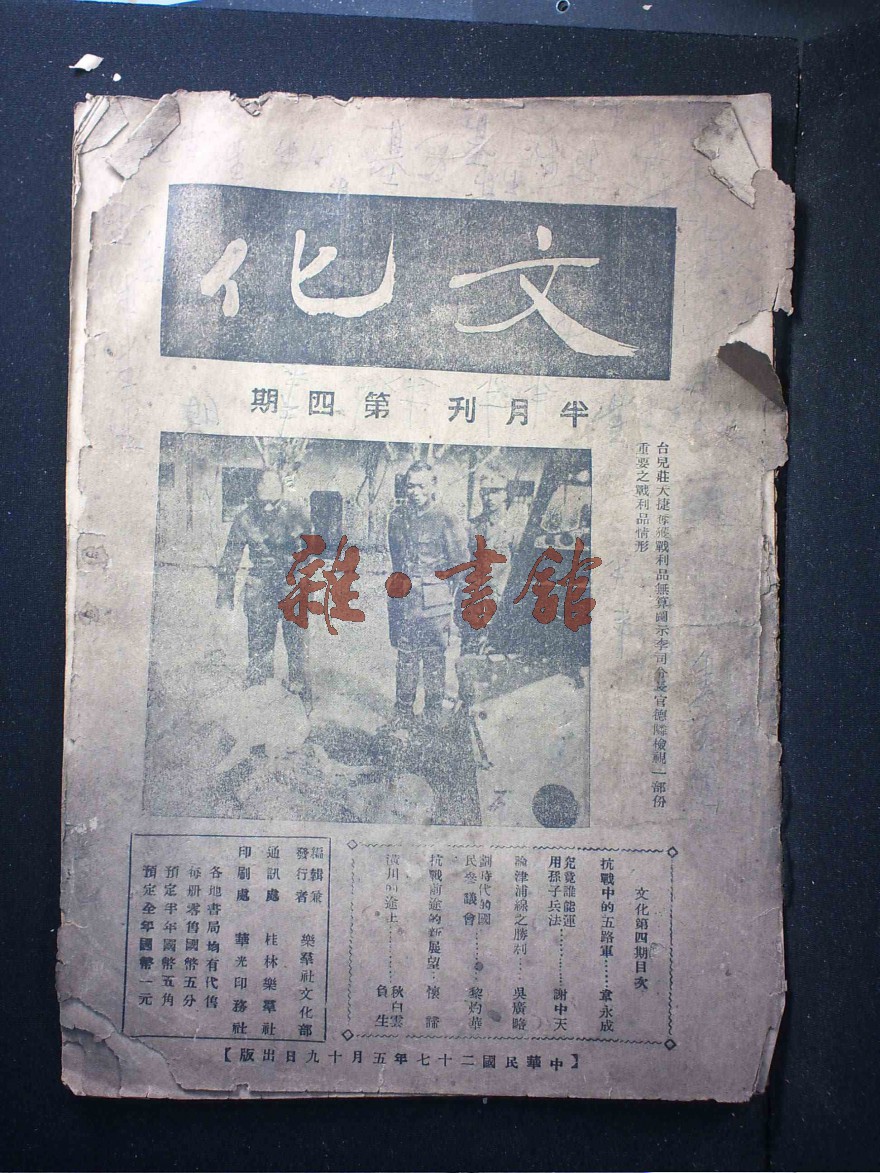 文化
半月刊 第四期
台兒莊大捷奪獲戰利品無算圖示李司令長官德隣檢視一部份
重要之戰利品情形
雜·書館
文化第四期目次
抗戰中的五路軍……韋永成
究竟誰能運
用孫子兵法……謝中天
論津浦線之勝利……吳廣略
劃時代的國
民參議會……黎灼華
抗戰前途的新展望…懷諦
潢川的途上……秋白雲
負生
編輯兼
發行者 樂羣社文化部
通訊處 桂林樂羣社
印刷處 華光印務社
各地書局均有代售
每册零售國幣五分
預定半年國幣五角
預定全年國幣一元
【中華民國二十七年五月十九日出版】